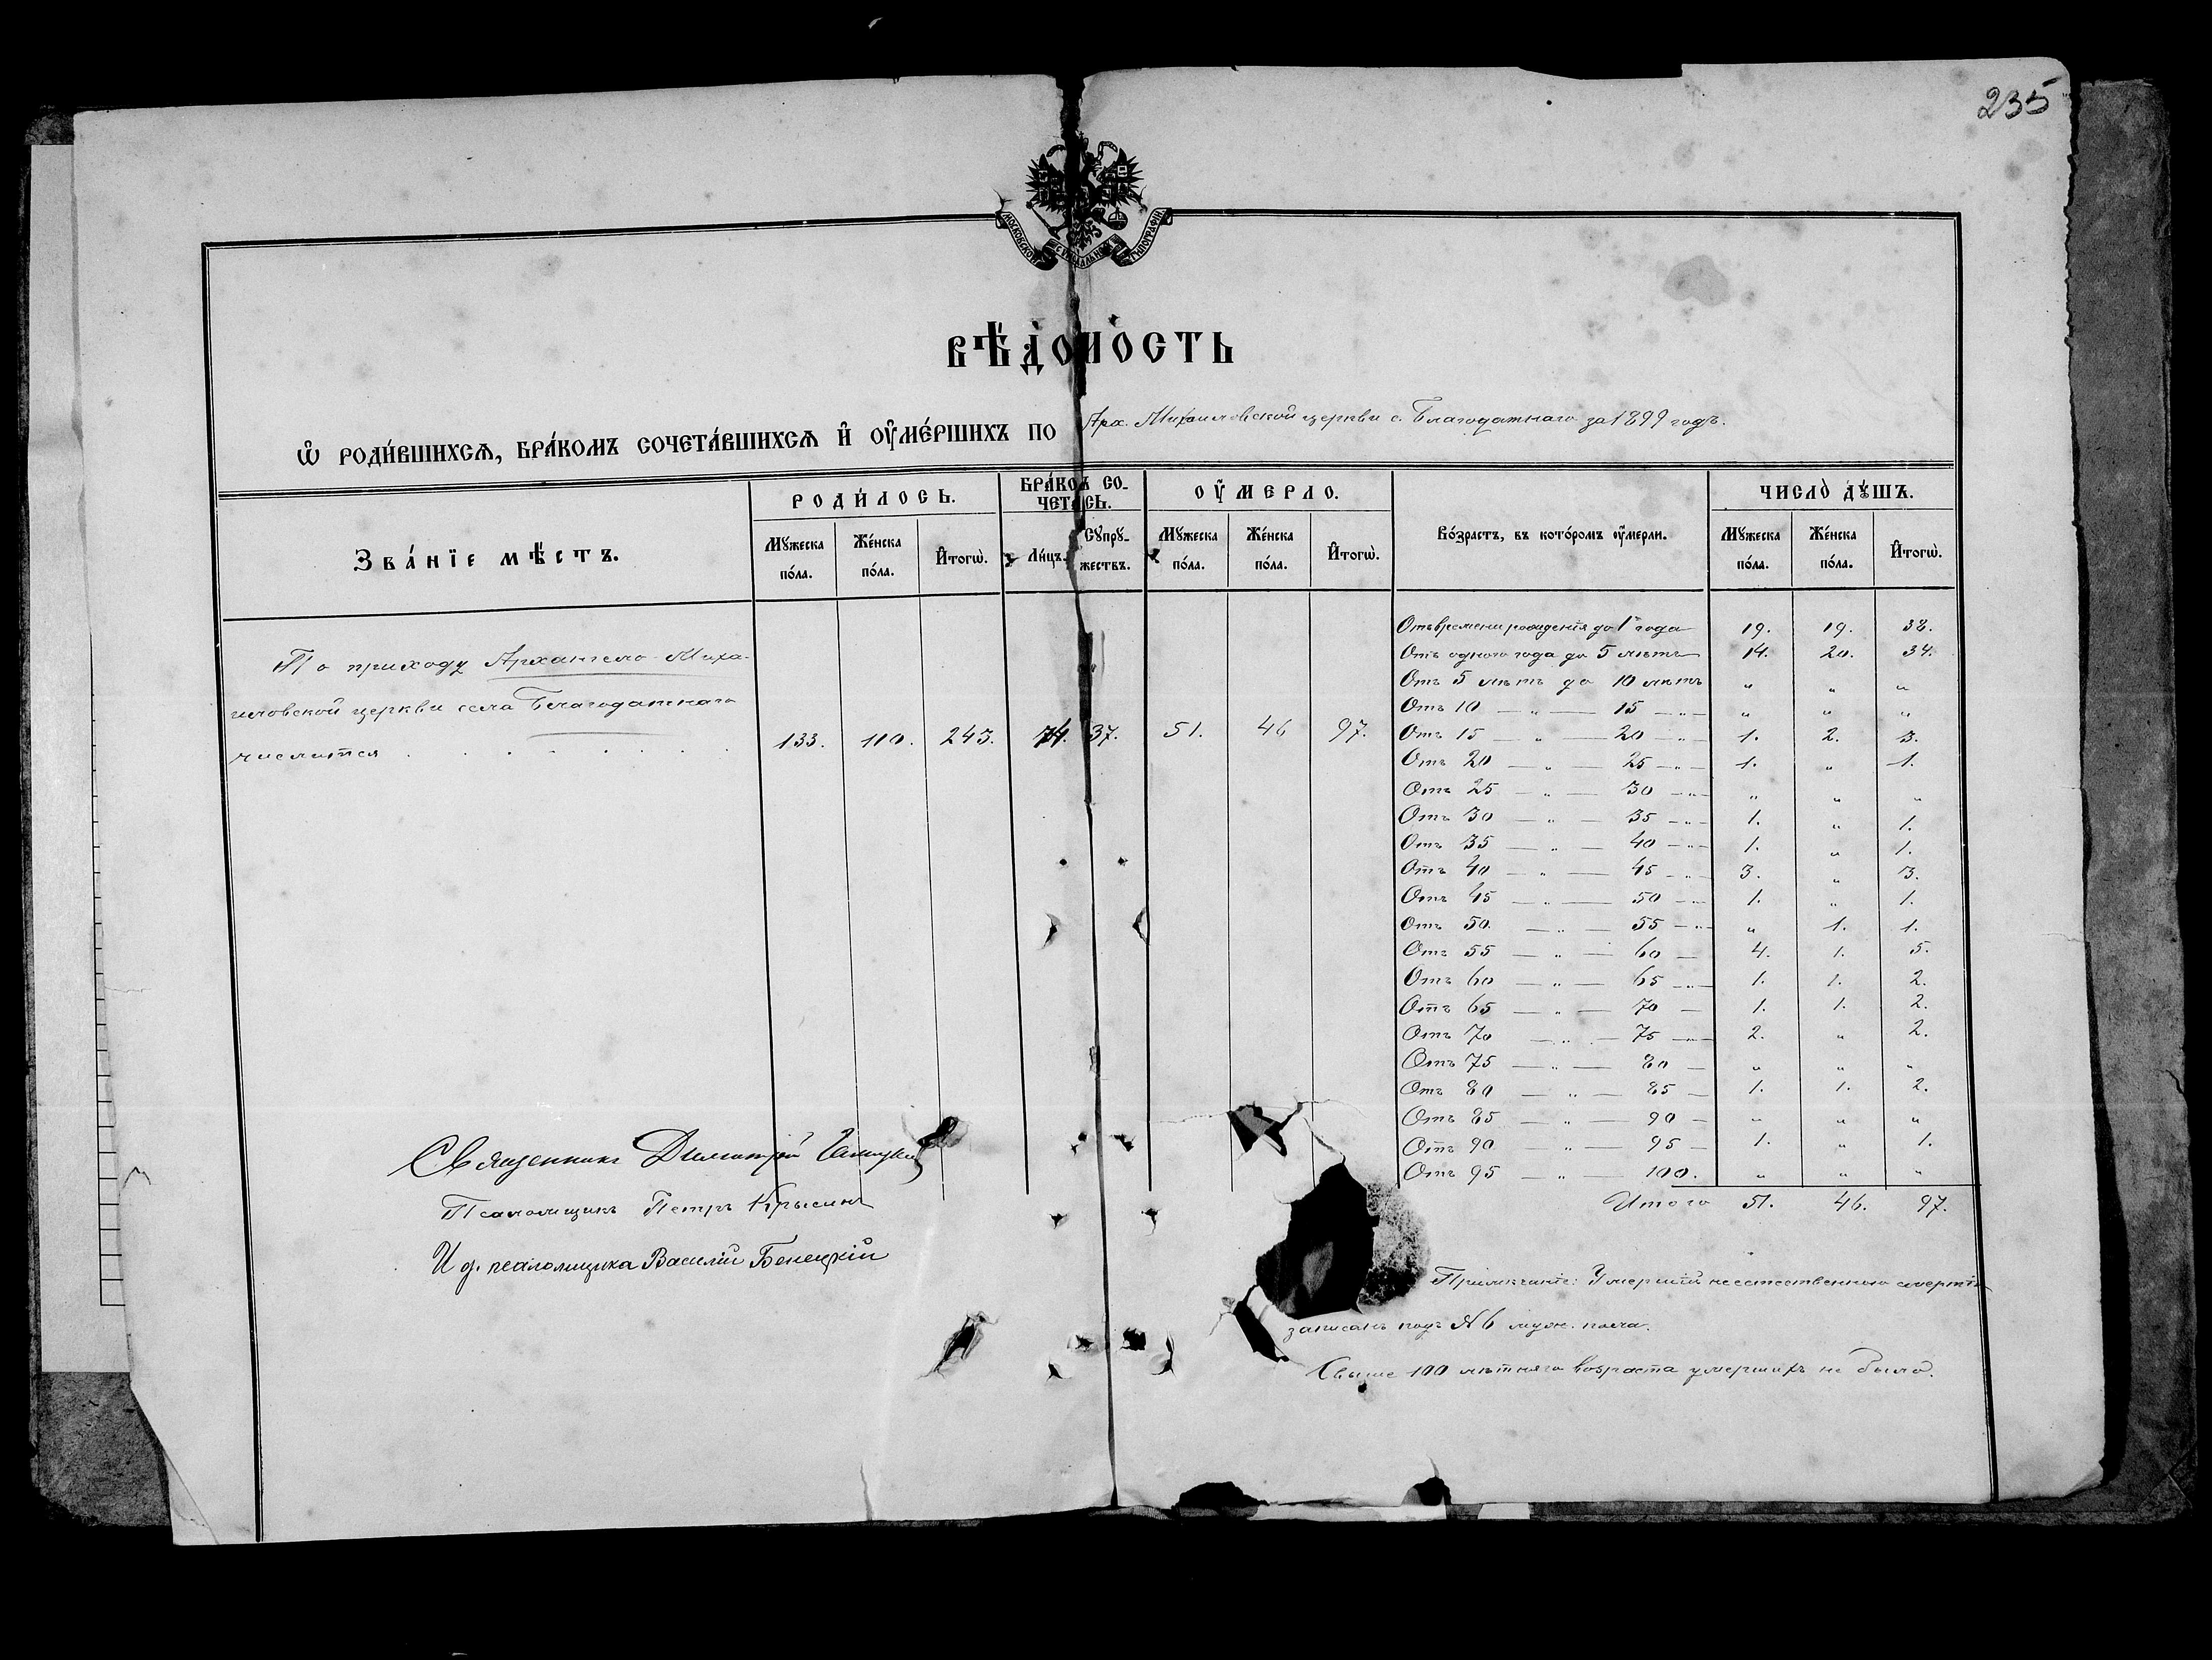 235
МОСКОВСКОЙ СѴНОДАЛЬНОЙ ТѴПОГРАФІИ
ВѢДОМОСТЬ
Ѡ РОДИ́ВШИХСѦ, БРА́КОМЪ СОЧЕТА́ВШИХСѦ И҆ ОУ҆МЕ́РШИХЪ ПО Арх. Михаиловской церкви с. Благодатнаго за 1899 годъ.
Зва́нїе мѣ́стъ.
РОДИ́ЛОСЬ.
БРА́КОМ СО-
ЧЕТА́СЬ.
ОУ҆МЕРЛО.
Во́зрастъ, въ кото́ромъ оу҆́мерли.
ЧИСЛО̀ ДꙊ́ШЪ.
Мꙋ́жеска по́ла. Же́нска по́ла. И҆того̀.
Ли́цъ. Сꙋпрꙋ́-
жествъ.
Мꙋ́жеска по́ла. Же́нска по́ла. И҆того̀.
Мꙋ́жеска по́ла. Же́нска по́ла. И҆того̀.
По приходу Архангело-Миха-
иловской церкви села Благодатнаго
числится . . . . . . . 133. 110. 243. 74. 37. 51. 46 97.
Отъ времени рожденія до 1го года 19. 19. 38.
Отъ одного года до 5 лѣтъ 14. 20. 34.
Отъ 5 лѣтъ до 10 лѣтъ „ „ „
Отъ 10 — „ — 15 — „ — „ „ „
Отъ 15 — „ — 20 — „ — 1. 2. 3.
Отъ 20 — „ — 25 — „ — 1. „ 1.
Отъ 25 — „ — 30 — „ — „ „ „
Отъ 30 — „ — 35 — „ — 1. „ 1.
Отъ 35 — „ — 40 — „ — 1. „ 1.
Отъ 40 — „ — 45 — „ — 3. „ 3.
Отъ 45 — „ — 50 — „ — 1. „ 1.
Отъ 50. — „ — 55 — „ — „ 1. 1.
Отъ 55 — „ — 60 — 4. 1. 5.
Отъ 60 — „ — 65 — „ — 1. 1. 2.
Отъ 65 — „ — 70 — 1. 1. 2.
Отъ 70 — „ — 75 — „ — 2. „ 2.
Отъ 75 — „ — 80 — „ „ „
Отъ 80 — „ — 85 — 1. 1. 2.
Отъ 85 — „ — 90 — „ „ „
Отъ 90 — „ — 95 — 1. „ 1.
Отъ 95 — „ — 100. „ „ „
Итого 51. 46. 97.
Священникъ Димитрій
Псаломщикъ Петръ Крысинъ
И д. псаломщика Василій Бенецкій
Примѣчаніе: Умершій неестественною смертію
записанъ подъ № 6 муж. пола.
Свыше 100 лѣтняго возраста умершихъ не было.